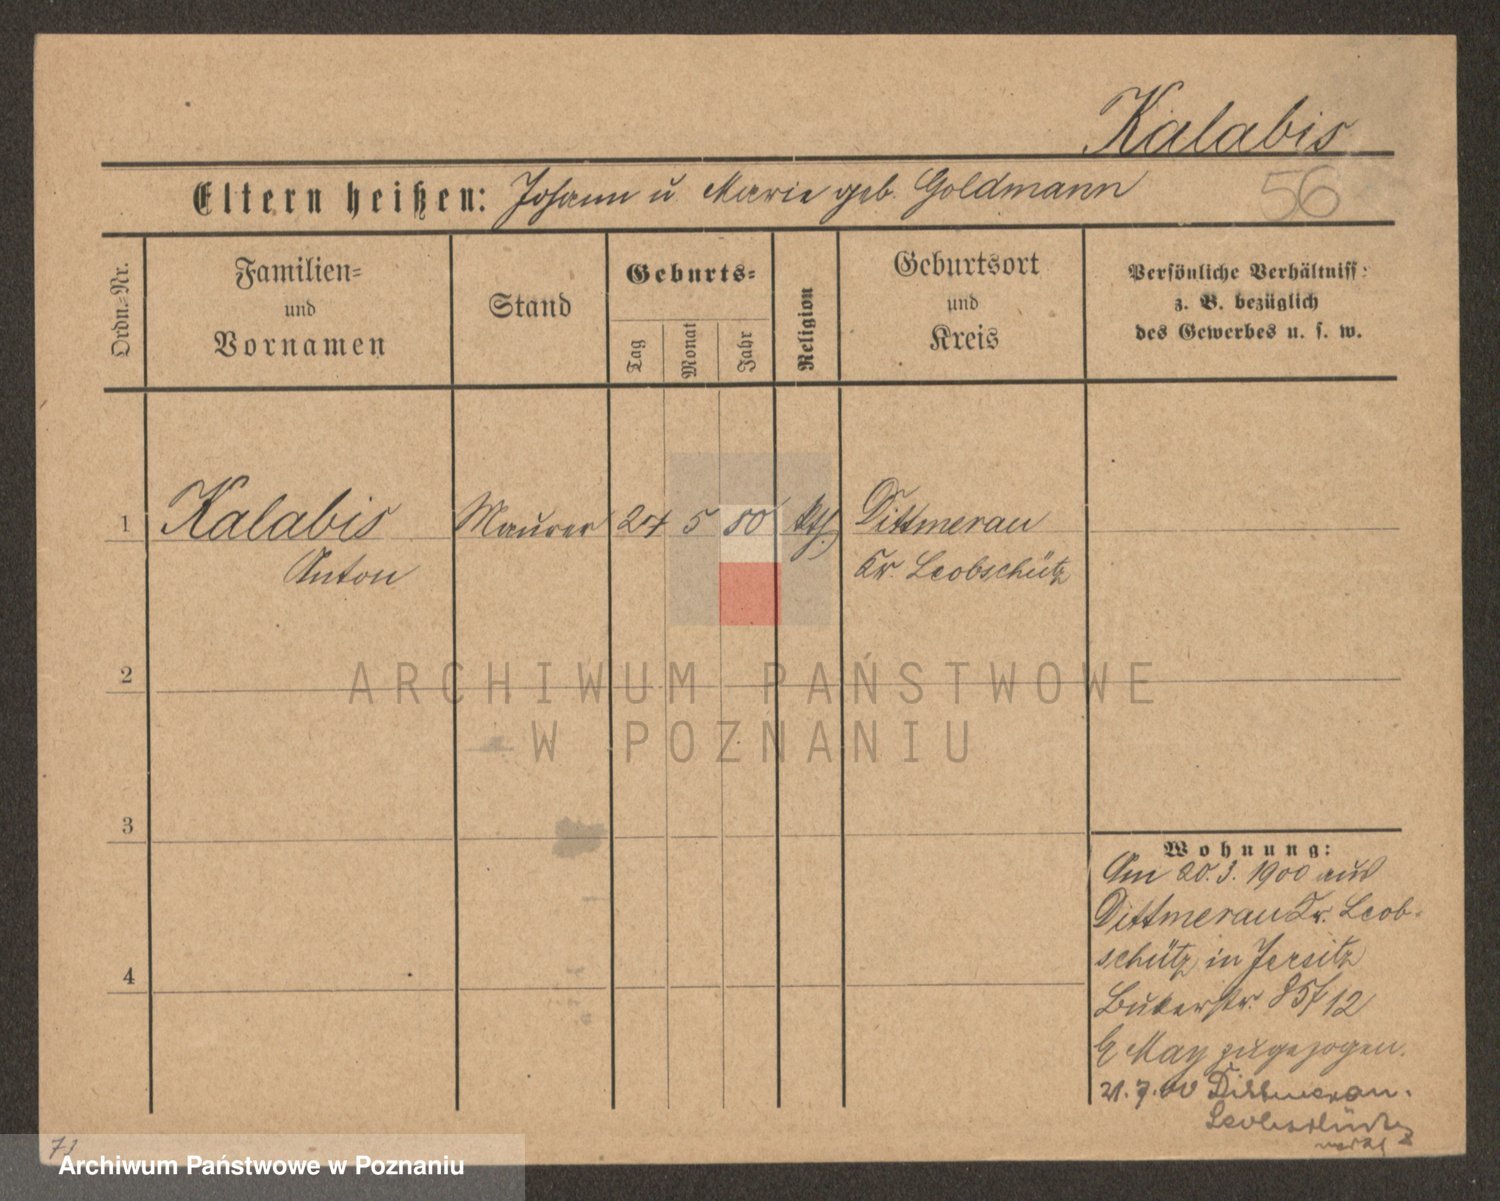 Kalabis
Eltern heißen: Johann u Marie geb. Goldmann
56
Ordn.-Nr.
Familien-
und
Vornamen
Stand
Geburts-
Tag
Monat
Jahr
Religion
Geburtsort
und
Kreis
Persönliche Verhältniss:
z. B. bezüglich
des Gewerbes u. s. w.
1 Kalabis Maurer 24 5 80 kth. Dittmerau
Anton Kr. Leobschütz
2
ARCHIWUM PAŃSTWOWE
W POZNANIU
3
Wohnung:
Am 20.3. 1900 aus
Dittmerau Kr. Leob-
schütz in Jersitz
Bukerstr. 12
May zugezogen.
21.7.00 Dittmerau.
Leobschütz
4
71
Archiwum Państwowe w Poznaniu